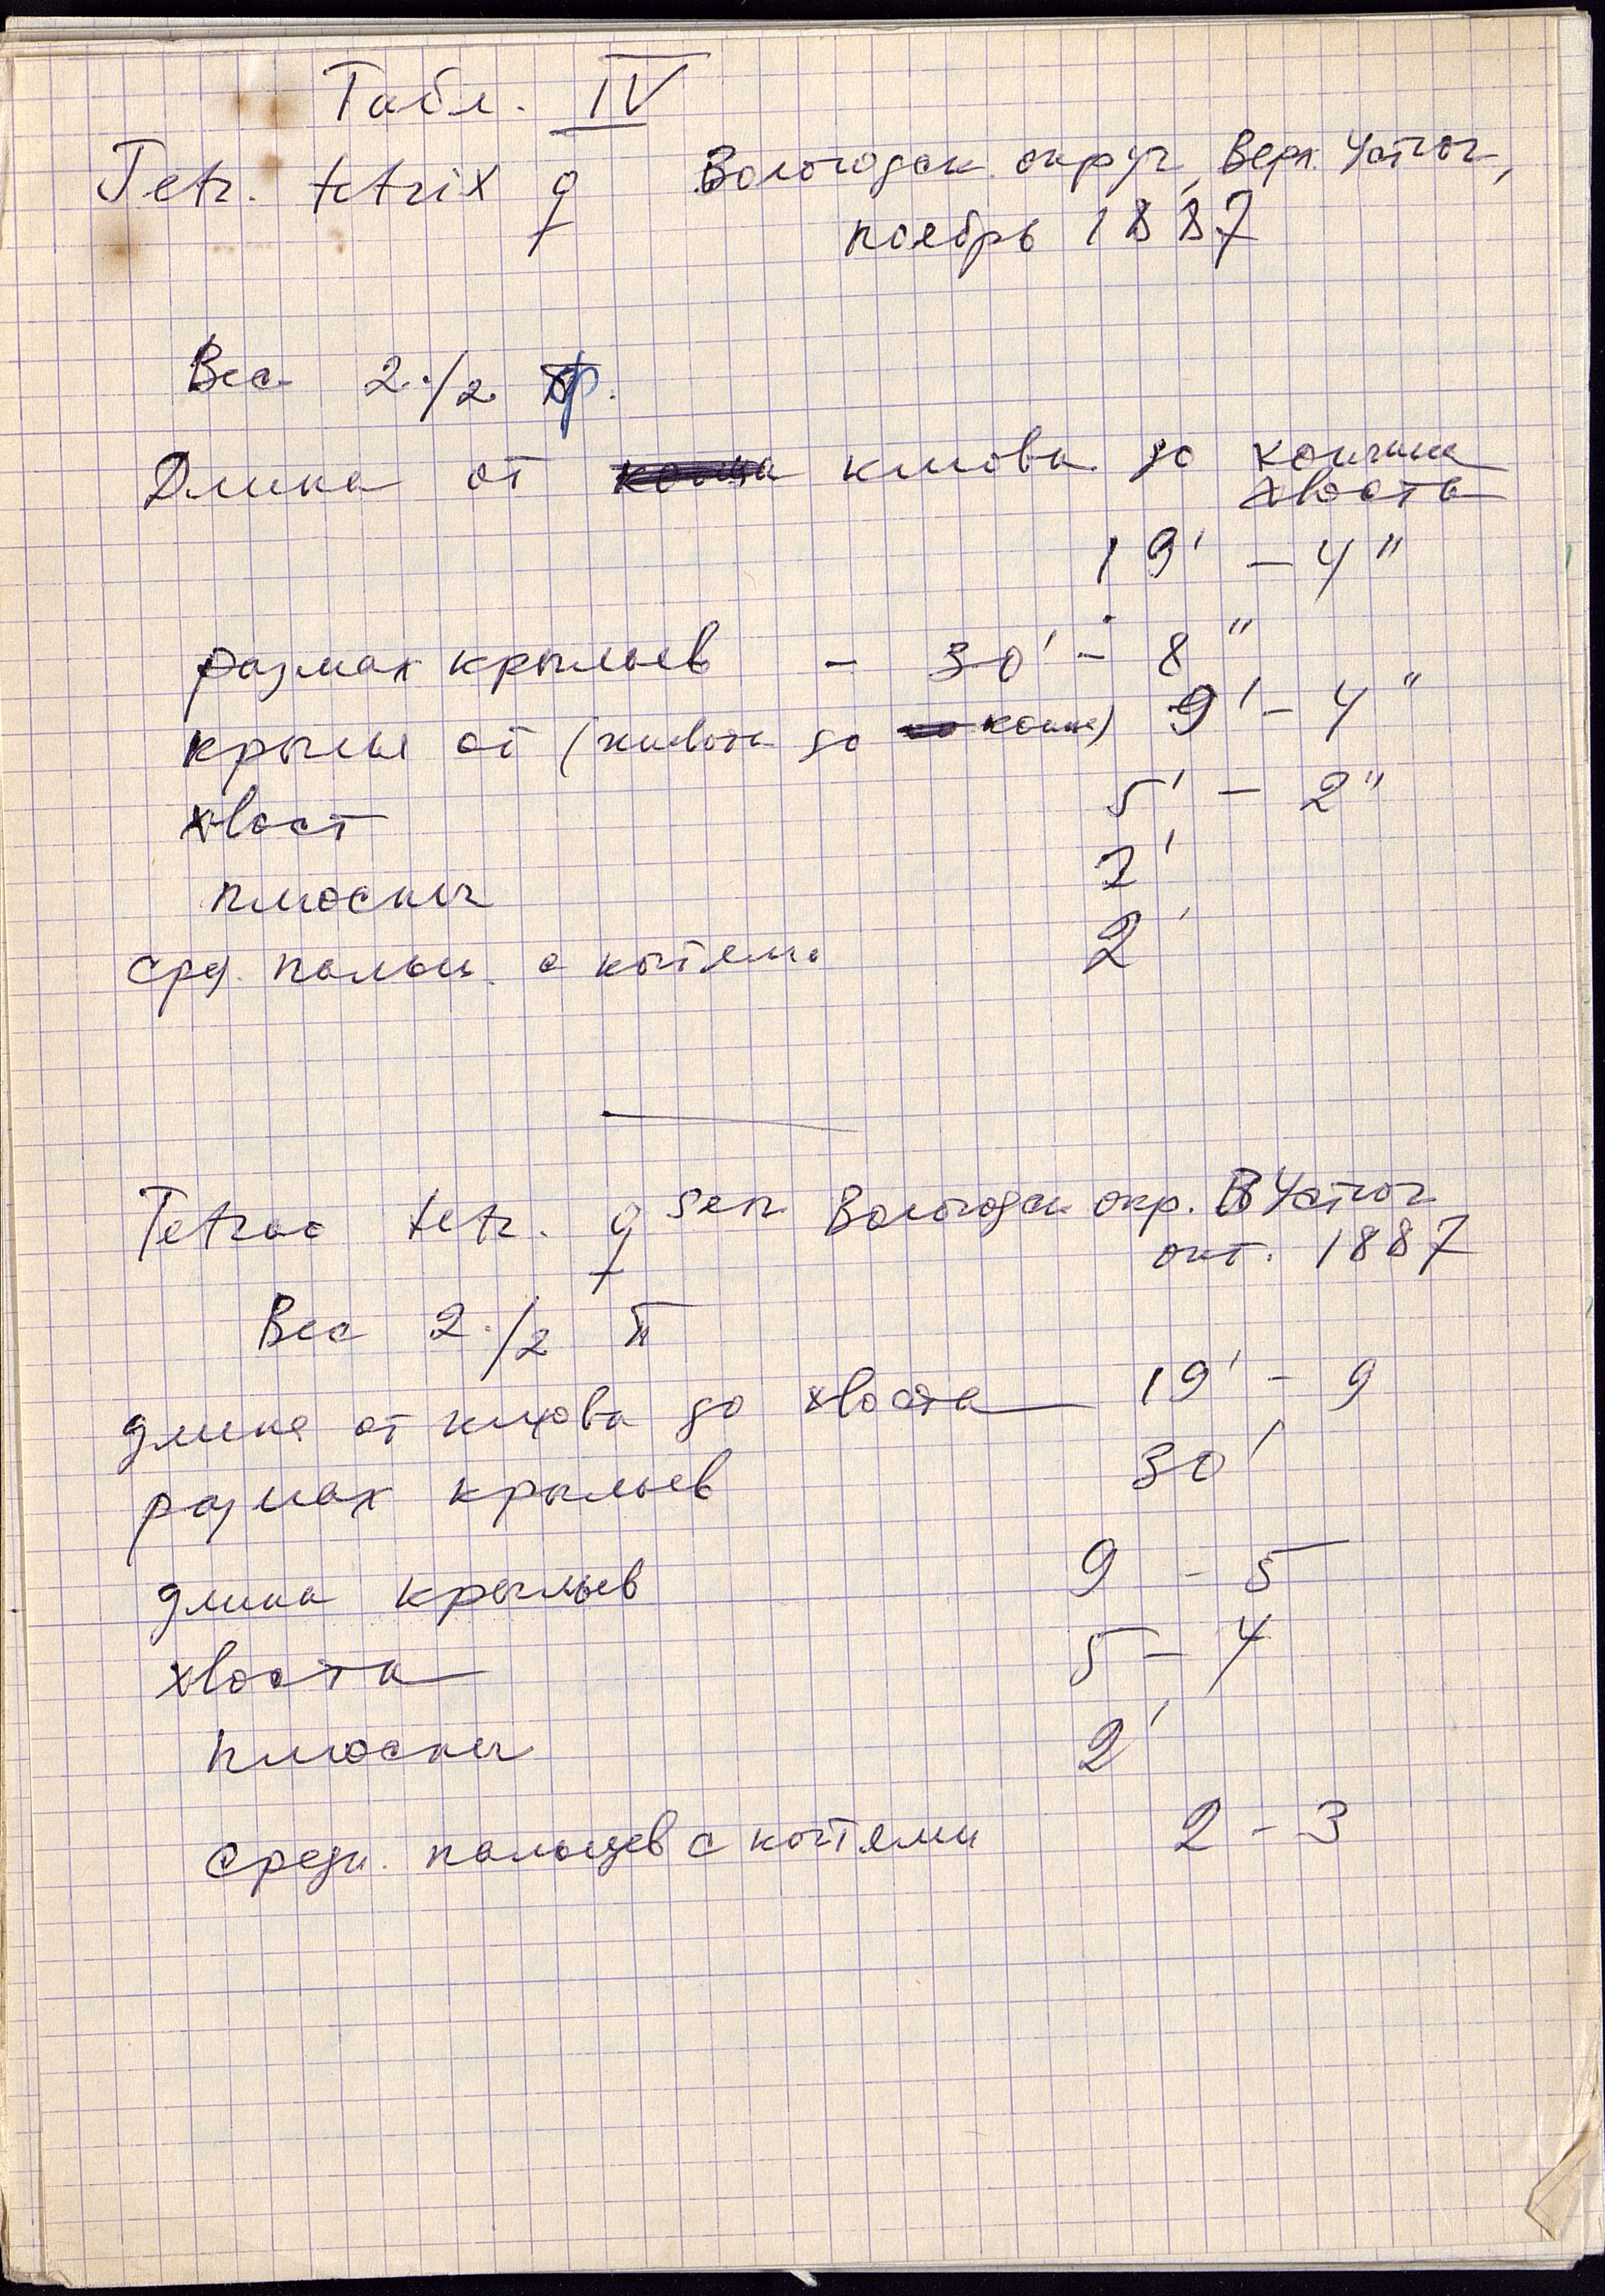 Табл. IV
Tetr. tetrix ♀ Вологодск. округ, Верх. Устюг,
ноябрь 1887
Вес 2 1/2 ф.
Длина от клюва до кончика
хвоста
19' – 4"
размах крыльев – 30' – 8"
крылья от ( до конца) 9' – 4"
хвост 5' – 2"
плюсны 2'
сред. пальц. с когтями 2'
Tetrao tetr. ♀ sen Вологодск окр. В Устюг
окт. 1887
Вес 2 1/2 п
длина от клюва до хвоста 19' – 9
размах крыльев 30'
длина крыльев 9 – 5
хвоста 5 – 4
плюсны 2'
средн. пальцев с когтями 2 – 3